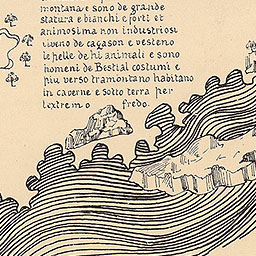 montana e sono de grande
statura e bianchi e forti et
animosi ma non industriosi
viveno de cagason e vesteno
le pelle de hi animali e sono
homeni de Bestial costumi e
piu verso tramontano habitano
in caverne e sotto terra per
lextremo fredo.